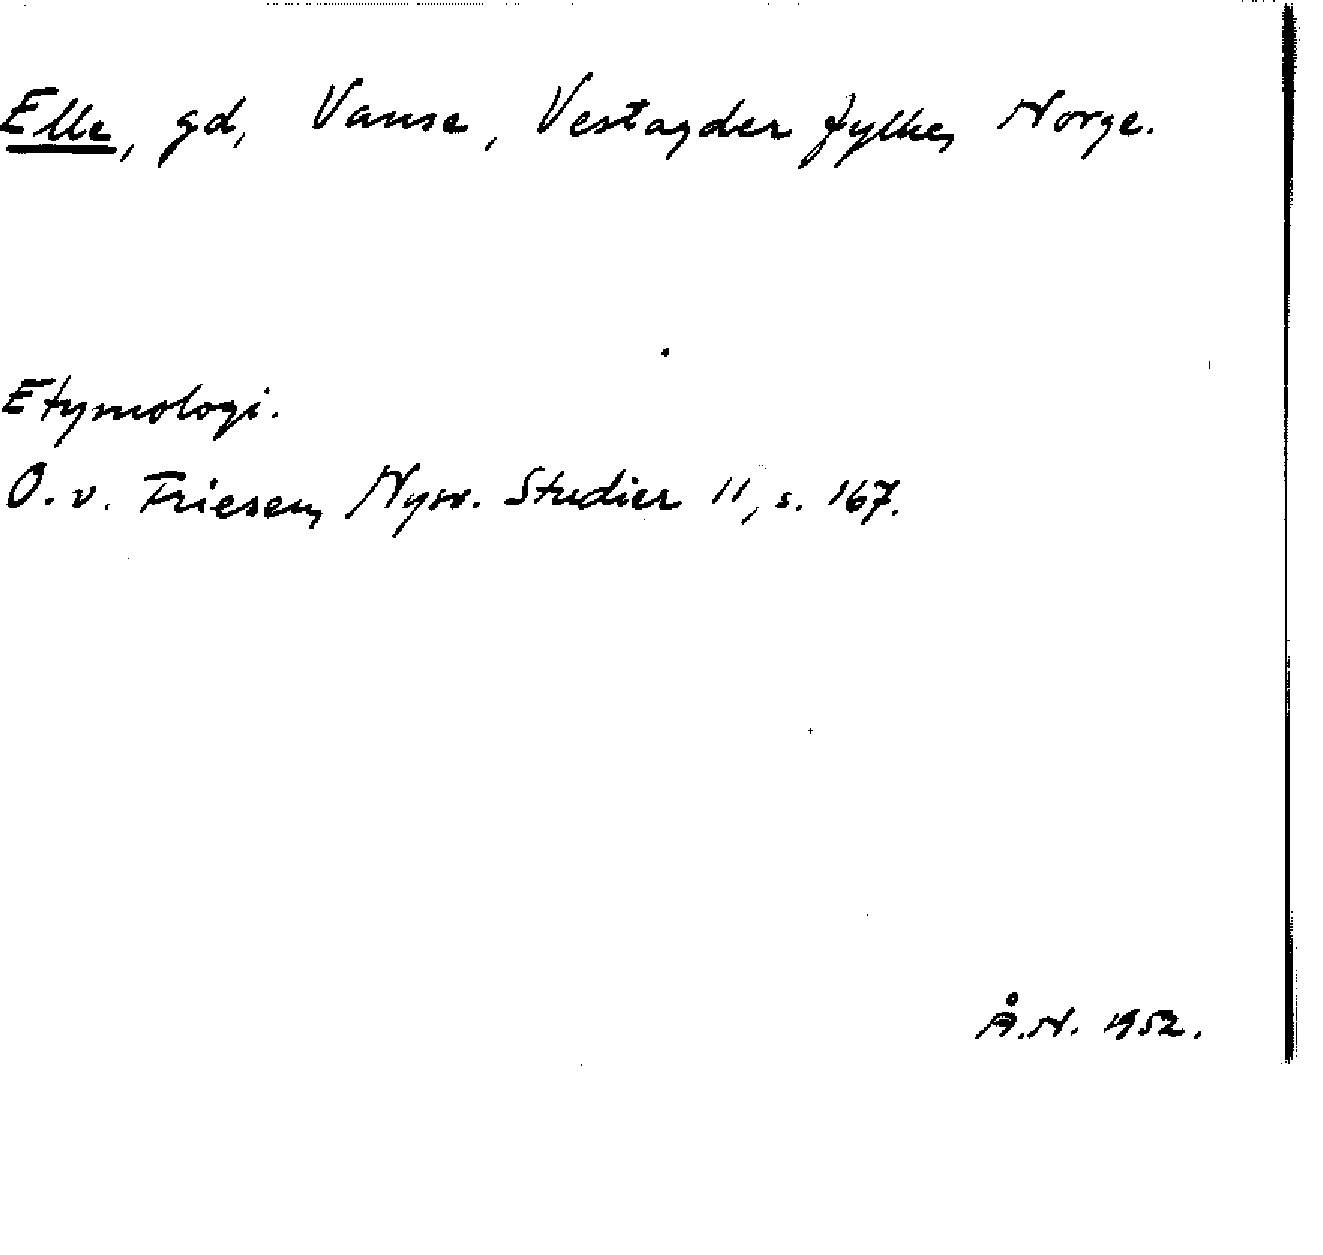 Elle, gd, Vanse, Vestagder fylke, Norge.
Etymologi.
O. v. Friesen, Nysv. Studier 11, s. 167.
Å.N. 1952.